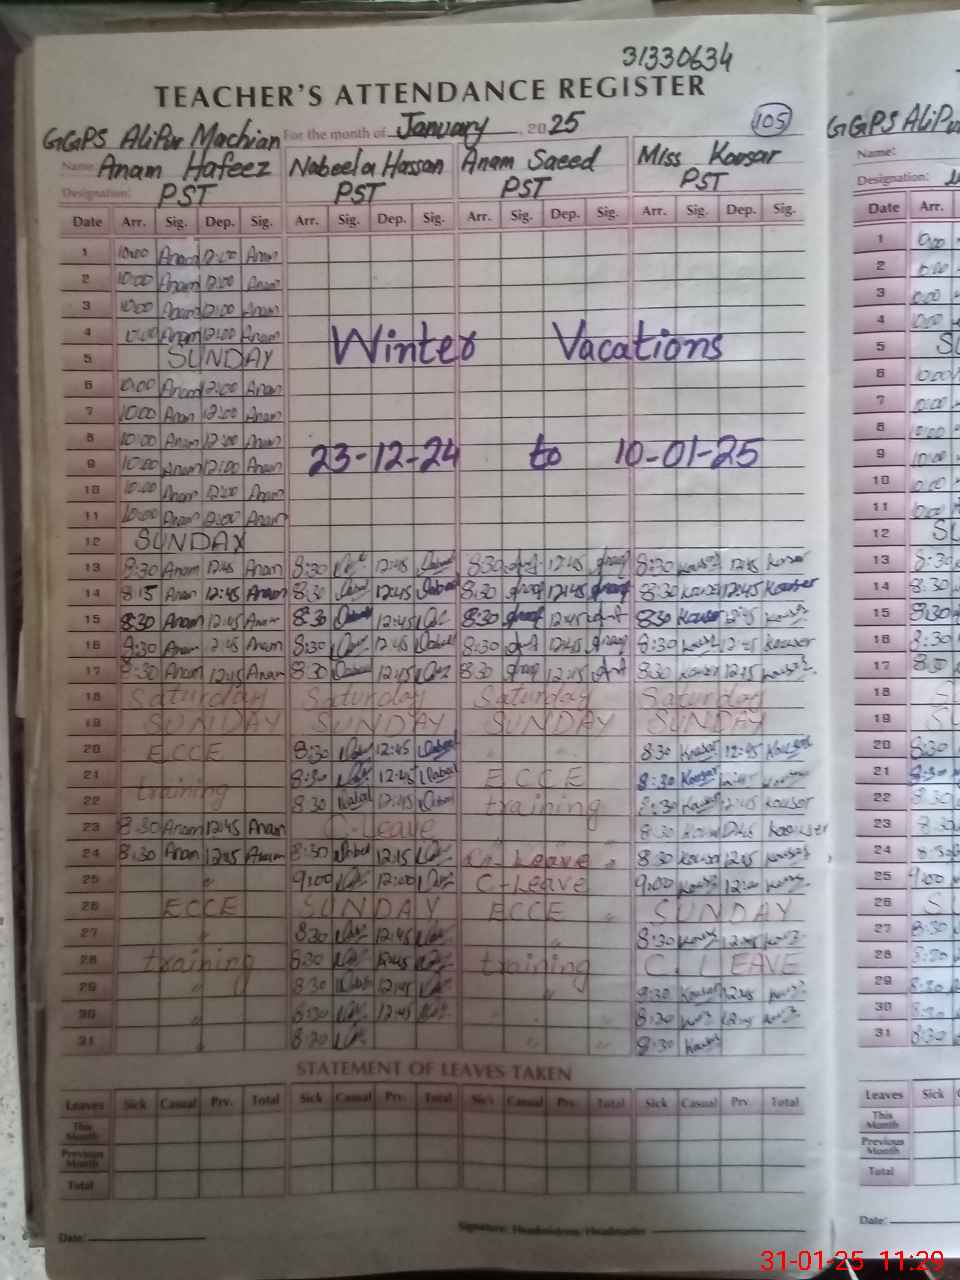 31330634
TEACHER'S ATTENDANCE REGISTER
GGPS AliPur Machian For the month of January, 2025 105
Name: Anam Hafeez Nabeela Hassan Anam Saeed Miss Kousar
Designation: PST PST PST PST
Date Arr. Sig. Dep. Sig. Arr. Sig. Dep. Sig. Arr. Sig. Dep. Sig. Arr. Sig. Dep. Sig.
1 10:00 Anam 12:00 Anam
2 10:00 Anam 12:00 Anam
3 10:00 Anam 12:00 Anam
4 10:00 Anam 12:00 Anam Winter Vacations
5 SUNDAY
6 10:00 Anam 12:00 Anam
7 10:00 Anam 12:00 Anam
8 10:00 Anam 12:00 Anam
9 10:00 Anam 12:00 Anam 23-12-24 to 10-01-25
10 10:00 Anam 12:00 Anam
11 10:00 Anam 12:00 Anam
12 SUNDAY
13 8:30 Anam 12:45 Anam 8:30 12:45 8:30 12:45 8:30 Kousar 12:45 Kousar
14 8:15 Anam 12:45 Anam 8:30 12:45 8:30 12:45 8:30 Kousar 12:45 Kouser
15 8:30 Anam 12:45 Anam 8:30 12:45 8:30 12:45 8:30 Kouser 12:45 Kousar
16 8:30 Anam 12:45 Anam 8:30 12:45 8:30 12:45 8:30 Kousar 12:45 Kouser
17 8:30 Anam 12:45 Anam 8:30 12:45 8:30 12:45 8:30 Kousar 12:45 Kousar
18 Saturday Saturday Saturday Saturday
19 SUNDAY SUNDAY SUNDAY SUNDAY
20 ECCE 8:30 12:45 8:30 Kousar 12:45 Kousar
21 8:30 12:45 ECCE 8:30 Kousar 12:45 Kousar
22 training 8:30 12:45 training 8:30 Kousar 12:45 Kouser
23 8:30 Anam 12:45 Anam C-Leave " 8:30 Kousar 12:45 Kouser
24 8:30 Anam 12:45 Anam 8:30 12:45 Leave 8:30 Kousar 12:45 Kousar
25 " 9:00 12:00 C-Leave 9:00 12:00
26 ECCE SUNDAY ECCE " SUNDAY
27 " 8:30 12:45 " 8:30 12:45
28 training 8:30 12:45 training C. LEAVE
29 " 8:30 12:45 " 8:30 Kousar 12:45
30 " 8:30 12:45 8:30 12:45
31 8:30 " " 8:30 Kousar
STATEMENT OF LEAVES TAKEN
Leaves Sick Casual Prv. Total Sick Casual Prv. Total Sick Casual Prv. Total Sick Casual Prv. Total
This Month
Previous Month
Total
Date: Signature: Headmistress/Headmaster
GGPS AliPu
Name:
Designation:
Date Arr.
1
2
3
4
5 SU
6 10:00
7 10:00
8 10:00
9 10:00
10 10:00
11 10:00
12 SU
13 8:30
14 8:30
15 8:30
16 8:30
17 8:30
18 S
19 SU
20 8:30
21 8:30
22 8:30
23 8:30
24 8:30
25 9:00
26 S
27 8:30
28 8:30
29 8:30
30 8:30
31 8:30
Leaves Sick
This Month
Previous Month
Total
Date:
31-01-25 11:29